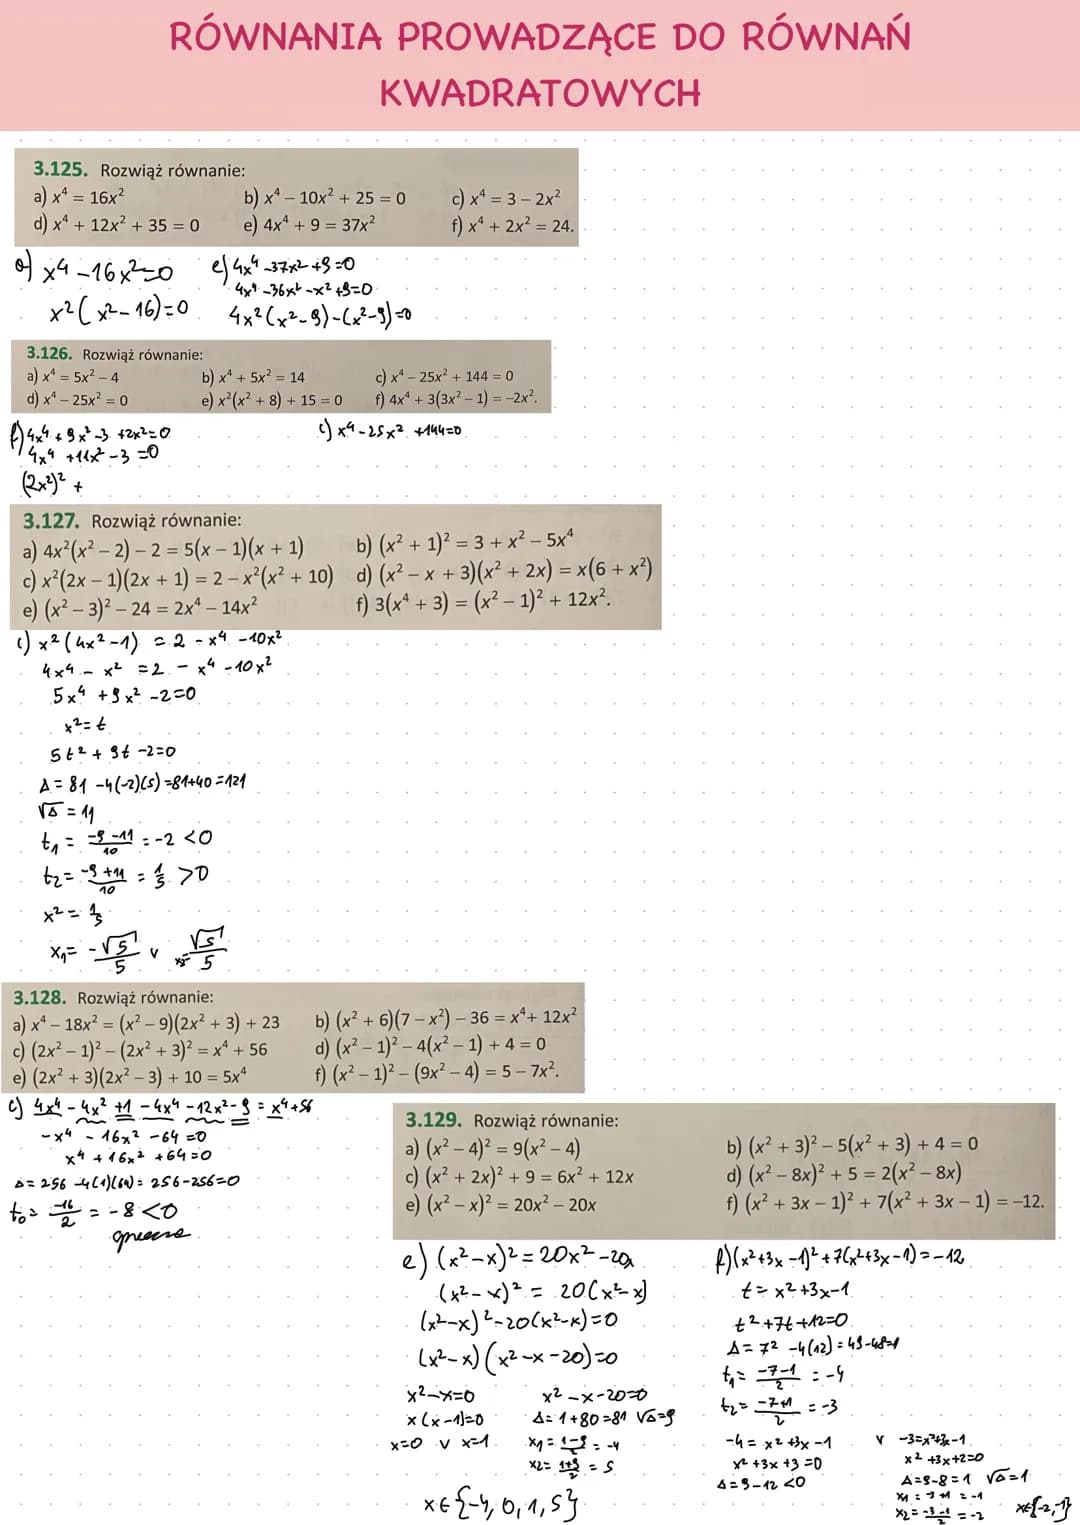 RÓWNANIA PROWADZĄCE DO RÓWNAŃ
KWADRATOWYCH
3.125. Rozwiąż równanie:
a) x⁴ = 16x² b) x⁴ – 10x² + 25 = 0 c) x⁴ = 3 – 2x²
d) x⁴ + 12x² + 35 = 0 e) 4x⁴ + 9 = 37x² f) x⁴ + 2x² = 24.
a) x⁴ - 16x² = 0
x² (x² - 16) = 0
e) 4x⁴ - 37x² + 9 = 0
4x⁴ - 36x² - x² + 9 = 0
4x² (x² - 9) - (x² - 9) = 0
3.126. Rozwiąż równanie:
a) x⁴ = 5x² – 4 b) x⁴ + 5x² = 14 c) x⁴ – 25x² + 144 = 0
d) x⁴ – 25x² = 0 e) x²(x² + 8) + 15 = 0 f) 4x⁴ + 3(3x² – 1) = –2x².
f) 4x⁴ + 9x² - 3 + 2x² = 0
4x⁴ + 11x² - 3 = 0
(2x²)² +
c) x⁴ - 25x² + 144 = 0
3.127. Rozwiąż równanie:
a) 4x²(x² – 2) – 2 = 5(x – 1)(x + 1) b) (x² + 1)² = 3 + x² – 5x⁴
c) x²(2x – 1)(2x + 1) = 2 – x²(x² + 10) d) (x² – x + 3)(x² + 2x) = x(6 + x²)
e) (x² – 3)² – 24 = 2x⁴ – 14x² f) 3(x⁴ + 3) = (x² – 1)² + 12x².
c) x² (4x² - 1) = 2 - x⁴ - 10x²
4x⁴ - x² = 2 - x⁴ - 10x²
5x⁴ + 9x² - 2 = 0
x² = t
5t² + 9t - 2 = 0
Δ = 81 - 4(-2)(5) = 81 + 40 = 121
√Δ = 11
t₁ = (-9 - 11)/10 = -2 < 0
t₂ = (-9 + 11)/10 = 1/5 > 0
x² = 1/5
x₁ = -√5/5 v x₂ = √5/5
3.128. Rozwiąż równanie:
a) x⁴ – 18x² = (x² – 9)(2x² + 3) + 23 b) (x² + 6)(7 – x²) – 36 = x⁴ + 12x²
c) (2x² – 1)² – (2x² + 3)² = x⁴ + 56 d) (x² – 1)² – 4(x² – 1) + 4 = 0
e) (2x² + 3)(2x² – 3) + 10 = 5x⁴ f) (x² – 1)² – (9x² – 4) = 5 – 7x².
c) 4x⁴ - 4x² + 1 - 4x⁴ - 12x² - 9 = x⁴ + 56
-x⁴ - 16x² - 64 = 0
x⁴ + 16x² + 64 = 0
Δ = 256 - 4(1)(64) = 256 - 256 = 0
t₀ = -16/2 = -8 < 0
3.129. Rozwiąż równanie:
a) (x² – 4)² = 9(x² – 4) b) (x² + 3)² – 5(x² + 3) + 4 = 0
c) (x² + 2x)² + 9 = 6x² + 12x d) (x² – 8x)² + 5 = 2(x² – 8x)
e) (x² – x)² = 20x² – 20x f) (x² + 3x – 1)² + 7(x² + 3x – 1) = –12.
e) (x² - x)² = 20x² - 20x
(x² - x)² = 20(x² - x)
(x² - x)² - 20(x² - x) = 0
(x² - x)(x² - x - 20) = 0
x² - x = 0
x(x - 1) = 0
x = 0 v x = 1
x² - x - 20 = 0
Δ = 1 + 80 = 81 √Δ = 9
x₁ = (1 - 9)/2 = -4
x₂ = (1 + 9)/2 = 5
x ∈ {-4, 0, 1, 5}
f) (x² + 3x - 1)² + 7(x² + 3x - 1) = -12
t = x² + 3x - 1
t² + 7t + 12 = 0
Δ = 7² - 4(12) = 49 - 48 = 1
t₁ = (-7 - 1)/2 = -4
t₂ = (-7 + 1)/2 = -3
-4 = x² + 3x - 1
x² + 3x + 3 = 0
Δ = 9 - 12 < 0
v -3 = x² + 3x - 1
x² + 3x + 2 = 0
Δ = 9 - 8 = 1 √Δ = 1
x₁ = (-3 + 1)/2 = -1
x₂ = (-3 - 1)/2 = -2
x ∈ {-2, -1}